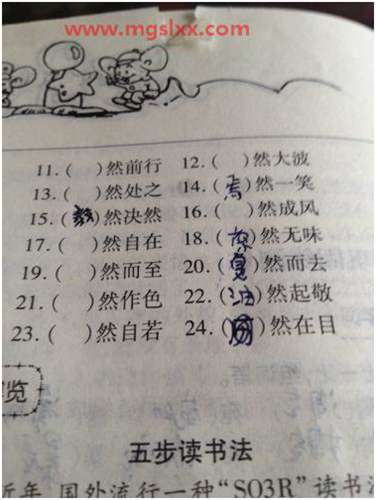 www.mgslxx.com
11.( )然前行 12.( )然大波
13.( )然处之 14.(焉)然一笑
15.( )然决然 16.( )然成风
17.( )然自在 18.( )然无味
19.( )然而至 20.( )然而去
21.( )然作色 22.( )然起敬
23.( )然自若 24.( )然在目
览
五步读书法
近年,国外流行一种“SO3R”读书法